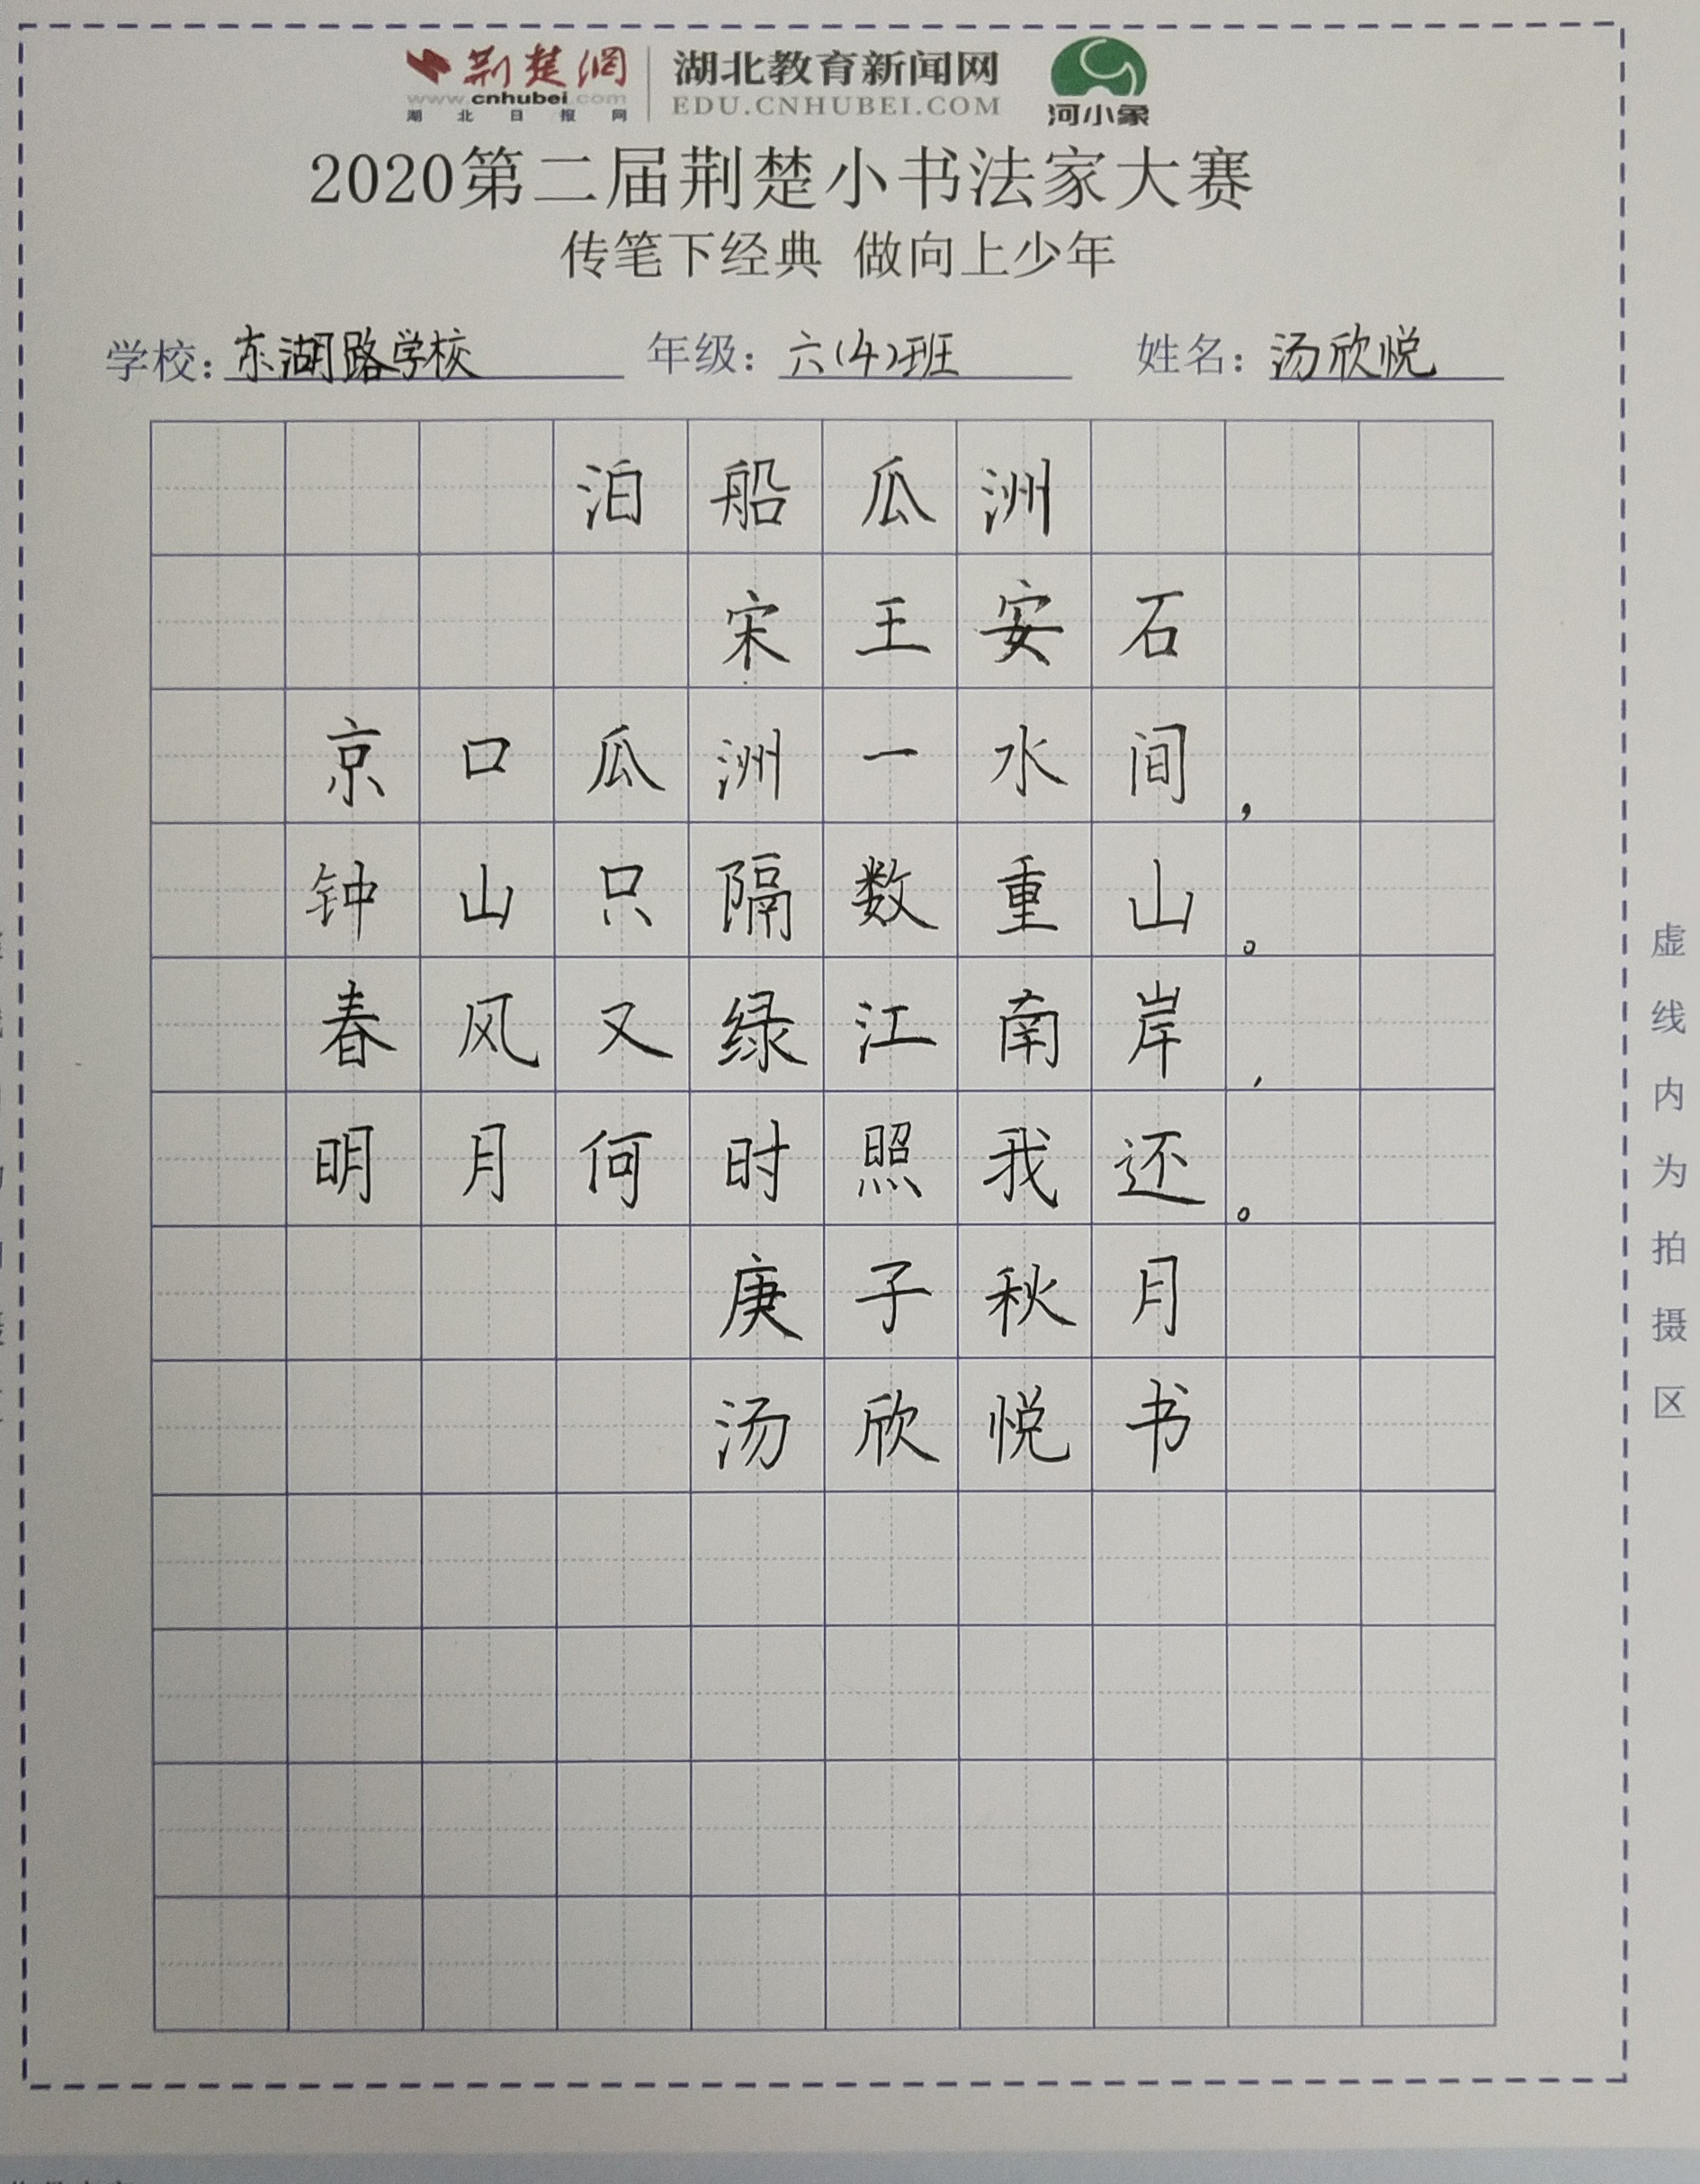 荆楚网 湖北教育新闻网
www.cnhubei.com EDU.CNHUBEI.COM
湖北日报网 河小象
2020第二届荆楚小书法家大赛
传笔下经典 做向上少年
学校：东湖路学校 年级：六(4)班 姓名：汤欣悦
泊船瓜洲
宋王安石
京口瓜洲一水间，
钟山只隔数重山。
春风又绿江南岸，
明月何时照我还。
庚子秋月
汤欣悦书
虚线内为拍摄区